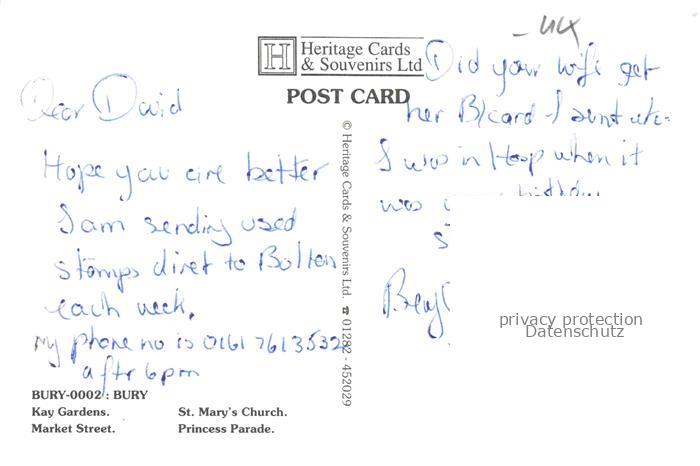 - UK
Heritage Cards
& Souvenirs Ltd
POST CARD
Dear David
Hope you are better
I am sending used
stamps diret to Bolton
each week.
My phone no is 0161 761 3532
aftr 6pm
Did your wife get
her B/card - I
I was in Hosp when it
was birthday
privacy protection
Datenschutz
© Heritage Cards & Souvenirs Ltd. ☎ 01282 - 452029
BURY-0002 : BURY
Kay Gardens. St. Mary's Church.
Market Street. Princess Parade.